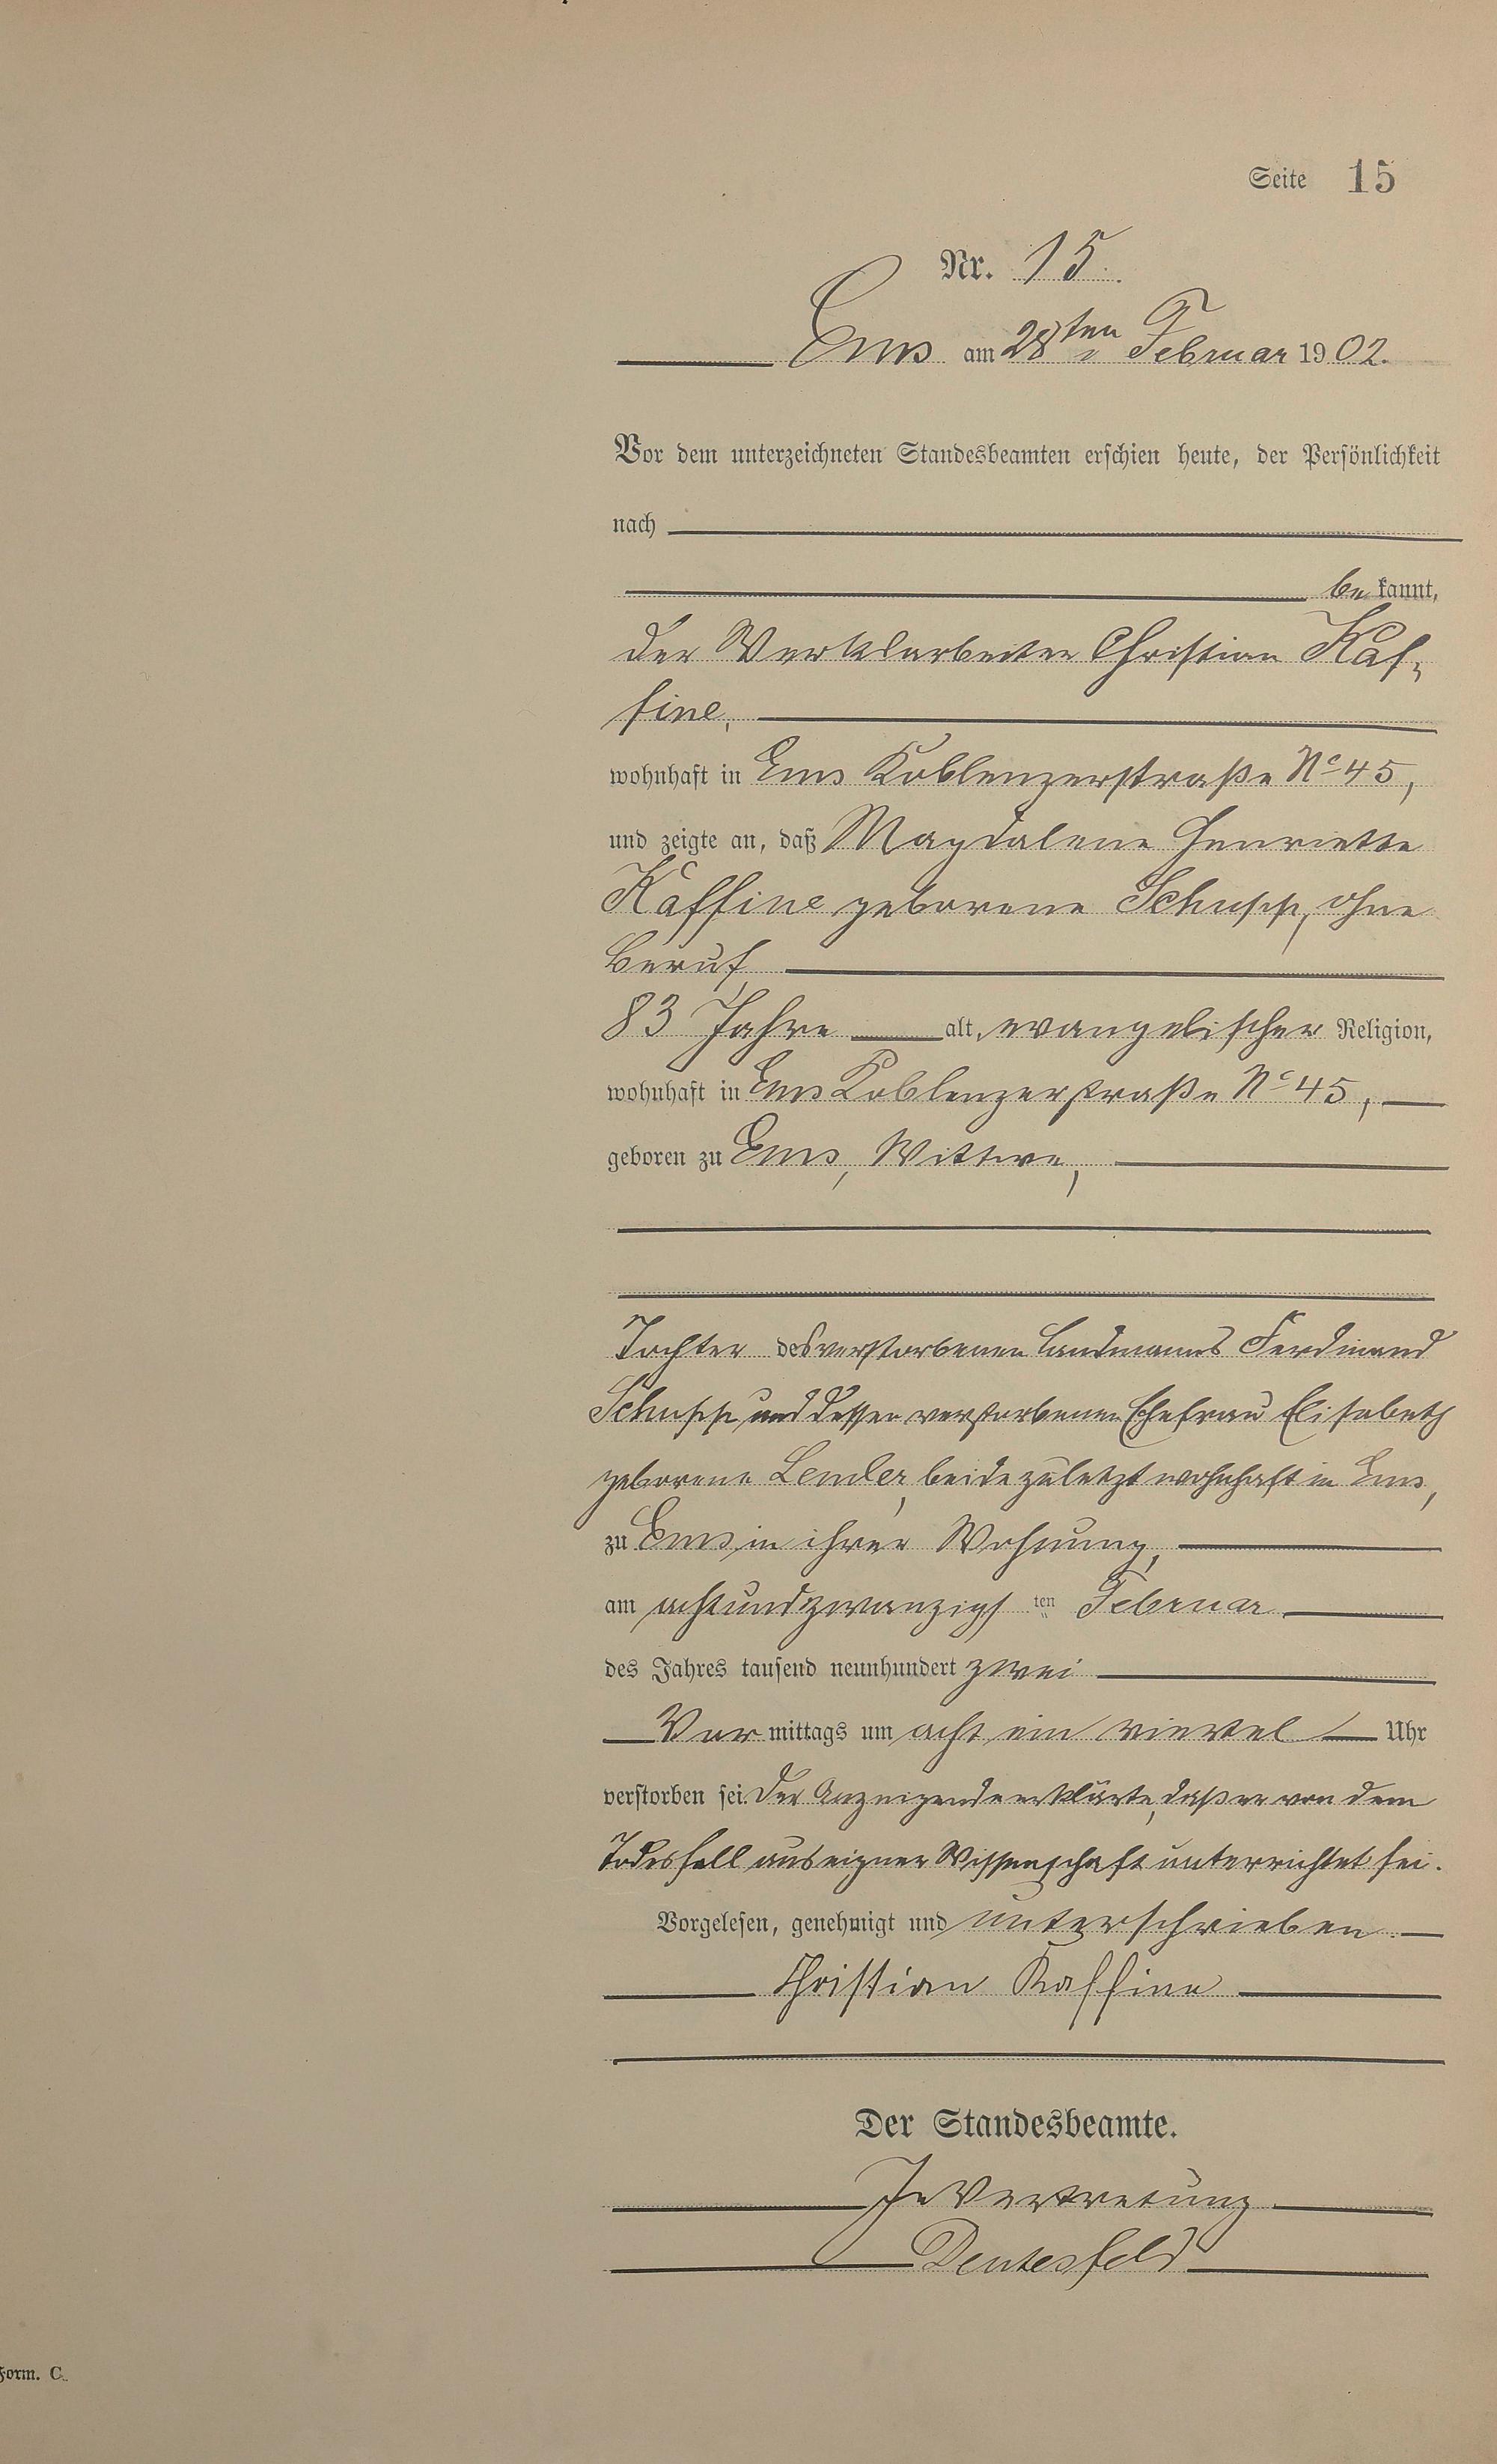 Seite 15
Nr. 15.
Ems am 28ten Februar 1902.
Vor dem unterzeichneten Standesbeamten erschien heute, der Persönlichkeit
nach
be kannt,
der Werksarbeiter Christian Kaf-
fine,
wohnhaft in Ems Koblenzerstraße No 45,
und zeigte an, daß Magdalene Henriette
Kaffine geborene Schupp, ohne
Beruf,
83 Jahre alt, evangelischer Religion,
wohnhaft in Ems Koblenzerstraße No 45,
geboren zu Ems, Wittwe,
Tochter des verstorbenen Landmanns Ferdinand
Schupp und dessen verstorbenen Ehefrau Elisabeth
geborene Lemler, beide zuletzt wohnhaft in Ems,
zu Ems in ihrer Wohnung,
am achtundzwanzigsten Februar
des Jahres tausend neunhundert zwei
Vormittags um acht ein viertel Uhr
verstorben sei. Der Anzeigende erklärte, daß er von dem
Todesfall aus eigner Wissenschaft unterrichtet sei.
Vorgelesen, genehmigt und unterschrieben.
Christian Kaffine
Der Standesbeamte.
In Vertretung
Deutesfeld
Form. C.